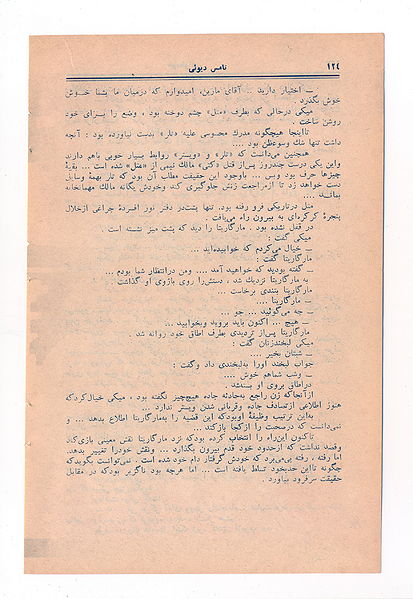 ۱۲۴ تامس دیوئی
ــ اختیار دارید .. آقای مارین، امیدوارم که درمیان ما بشما خوش
خوش بگذرد .
میکی درحالی که بطرف «متل» چشم دوخته بود ، وضع را برای خود
روشن ساخت .
تااینجا هیچگونه مدرك محسوسی علیه «تار» بدست نیاورده بود : آنچه
داشت تنها شك وسوءظن بود ....
همچنین می‌دانست که «تار» و «ویستر» روابط بسیار خوبی باهم دارند
واین یکی درست چندروز پس‌از قتل مالك نیمی از «متل» شده است ... بقیهٔ
چیزها حرف بود وبس ... باوجود این حقیقت مطلب آن بود که تار بهمه وسایل
دست خواهد زد تا ازمراجعت زنش جلوگیری کند وخودش یگانه مالك مهمانخانه
بماند ....
متل درتاریکی فرو رفته بود. تنها پشت‌در دفتر نور افسردهٔ چراغی ازخلال
پنجرهٔ کرکره‌ای به بیرون راه می‌یافت .
در قفل نشده بود . مارگاریتا را دید که پشت میز نشسته است .
میکی گفت :
ــ خیال می‌کردم که خوابیده‌اید ...
مارگاریتا گفت :
ــ گفته بودید که خواهید آمد .... ومن درانتظار شما بودم ...
به مارگاریتا نزدیك شد ، دستش‌را روی بازوی او گذاشت .
مارگاریتا بتندی برخاست ...
ــ مارگاریتا ....
ــ چه می‌گوئید ... جو ...
ــ هیچ ... اکنون باید بروید وبخوابید ...
مارگاریتا پس‌از تردیدی بطرف اطاق خود روانه شد .
میکی لبخندزنان گفت :
ــ شبتان بخیر ....
جواب لبخند اورا به‌لبخندی داد وگفت :
ــ وشب شماهم خوش ....
دراطاق بروی او بسته‌شد .
ازآنجاکه زن راجع به‌حادثه جاده هیچ‌چیز نگفته بود ، میکی خیال‌کردکه
هنوز اطلاعی ازتصادف جاده وقربانی شدن ویستر ندارد ...
به‌این ترتیب وظیفهٔ اوبودکه این قضیه را به‌مارگاریتا اطلاع بدهد ... و
نمی‌دانست که درصحبت را ازکجا بازکند ...
تاکنون این‌راه را انتخاب کرده بودکه نزد مارگاریتا نقش معینی بازی‌کند
وقصد نداشت که ازحدود خود قدم بیرون بگذارد ... ونقش خودرا تغییر بدهد.
اما رفته ، رفته پی‌می‌برد که خودش گرفتار دام خود شده است . نمی‌توانست بگویدکه
چگونه تااین حدبخود تسلط یافته است ... اما هرچه بود ناگزیر بودکه در مقابل
حقیقت سرفرود بیاورد .